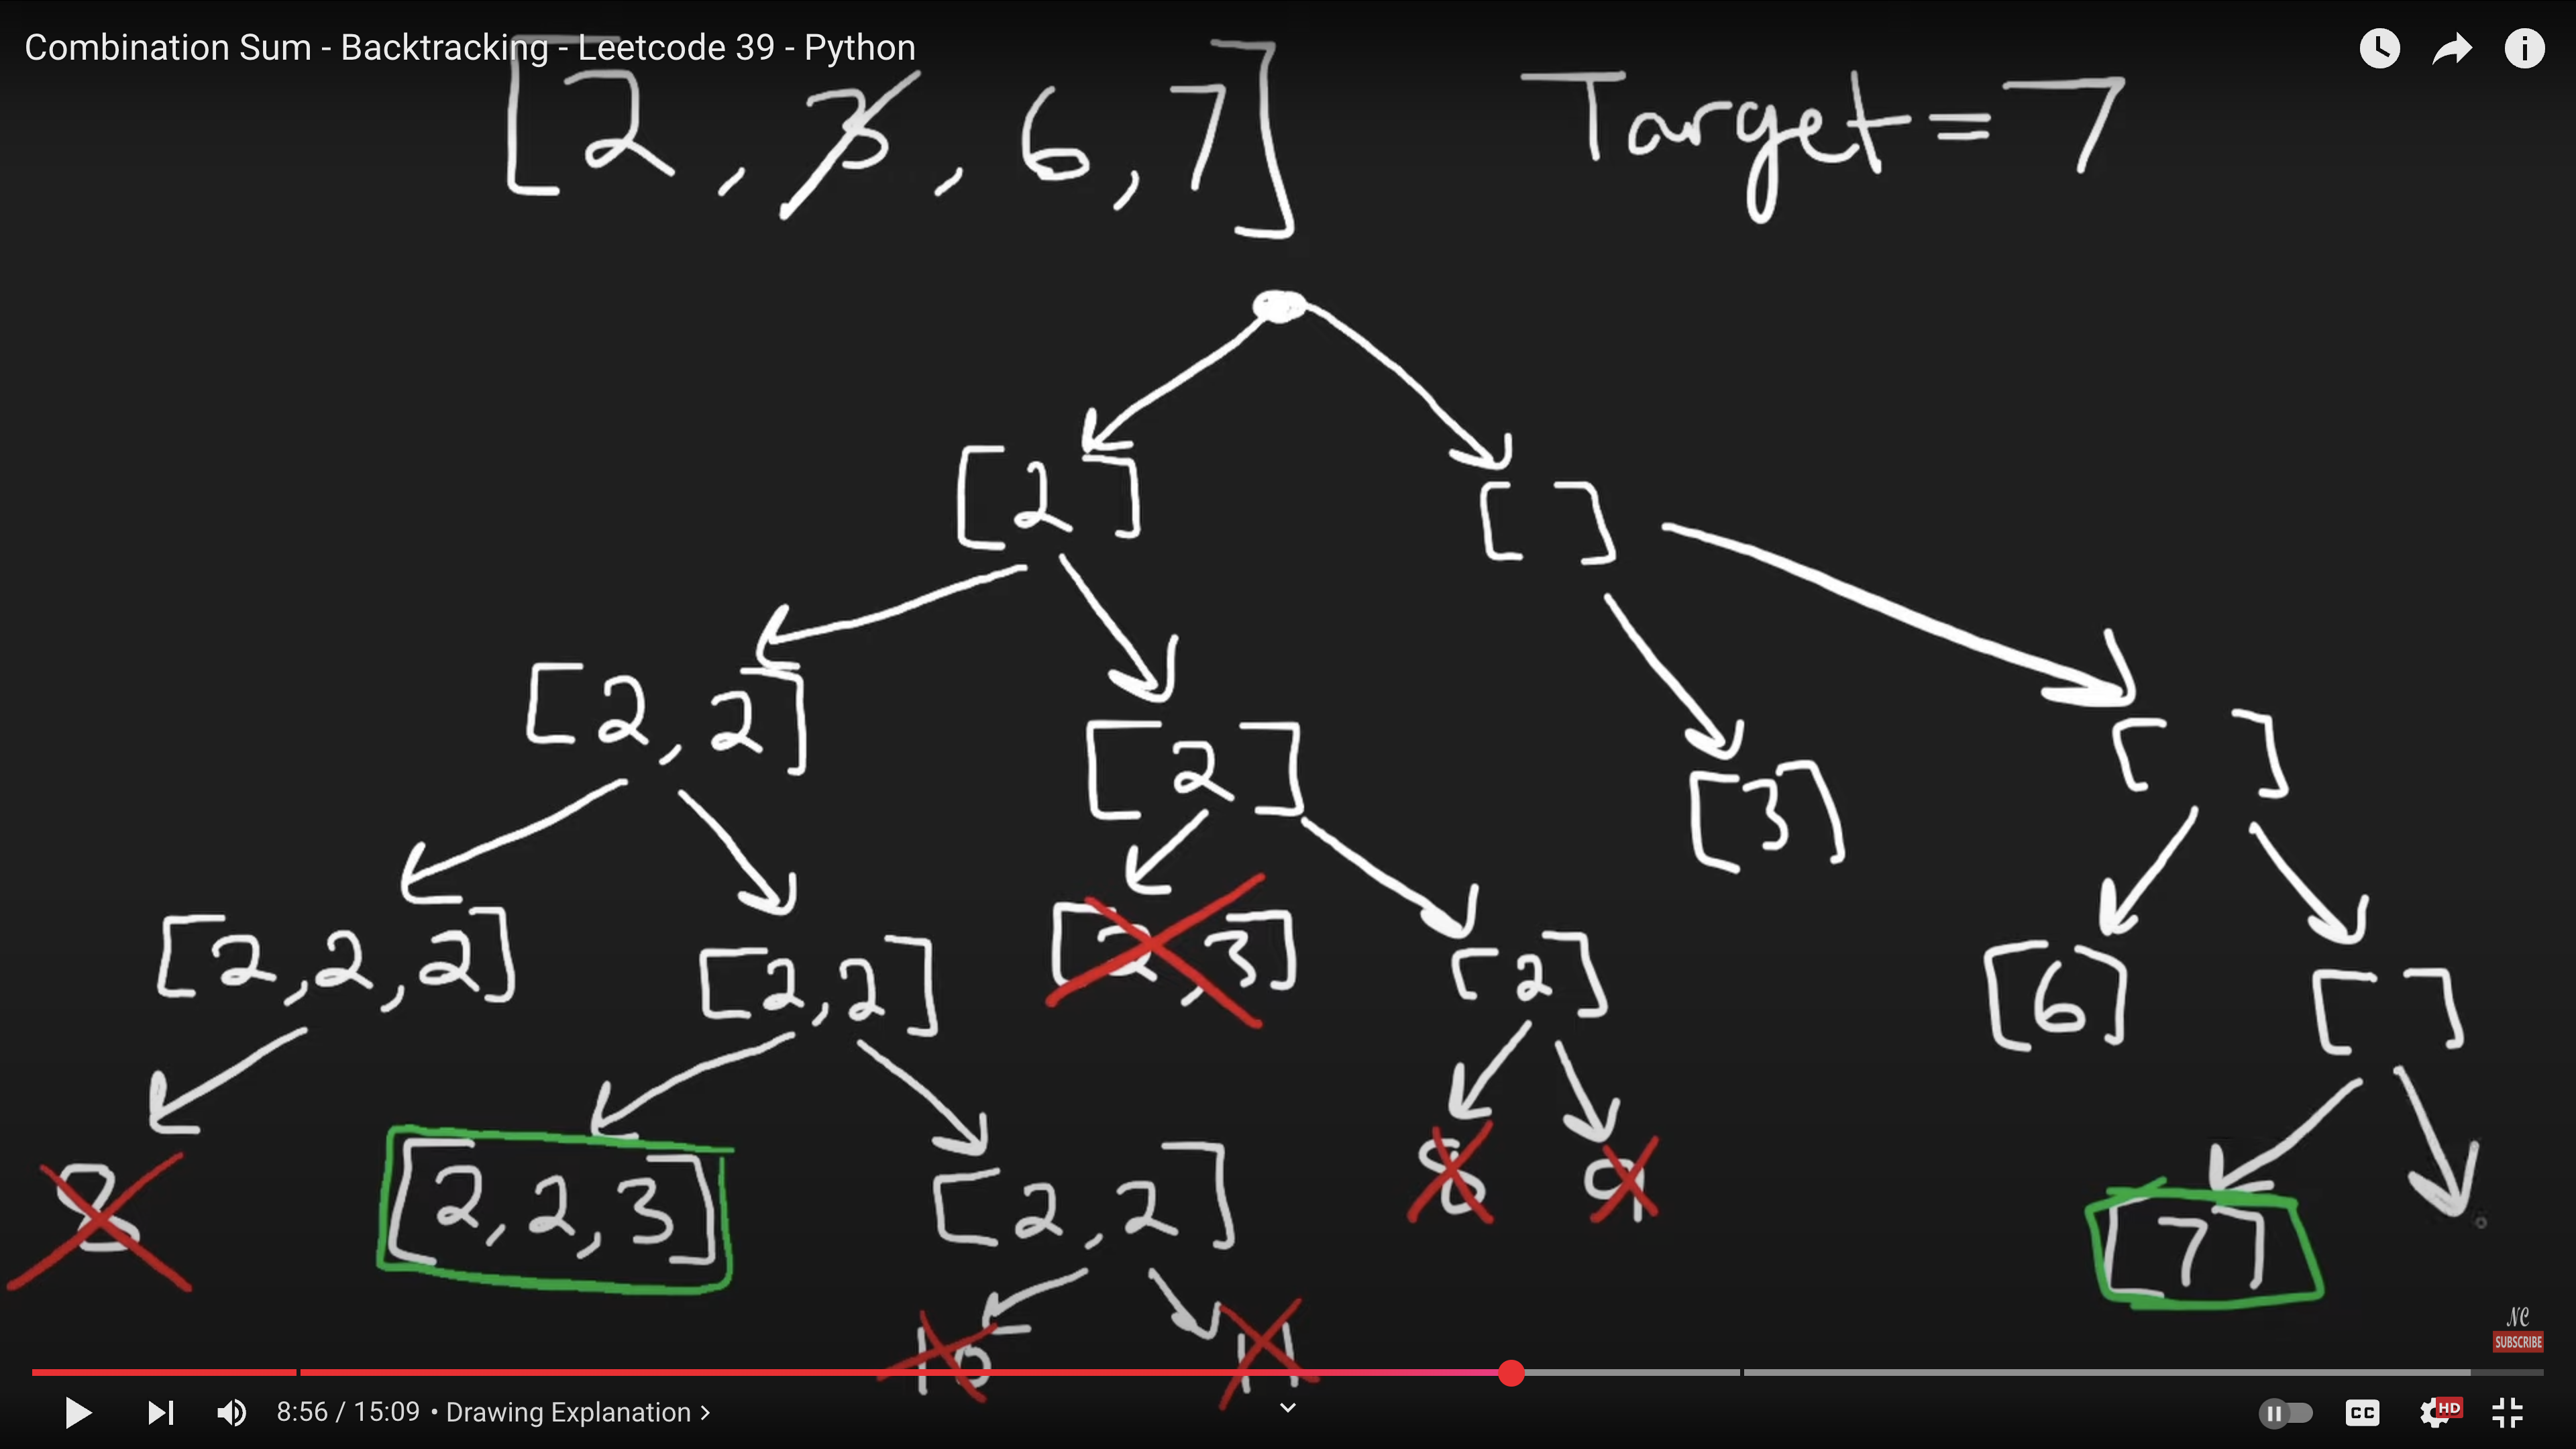 Combination Sum - Backtracking - Leetcode 39 - Python
[2, 3, 6, 7] Target=7
[2] [ ]
[2,2] [2] [3] [ ]
[2,2,2] [2,2] [2,3] [2] [6] [ ]
8 [2,2,3] [2,2] 8 9 [7]
10 11
NC
SUBSCRIBE
8:56 / 15:09 • Drawing Explanation >
CC HD